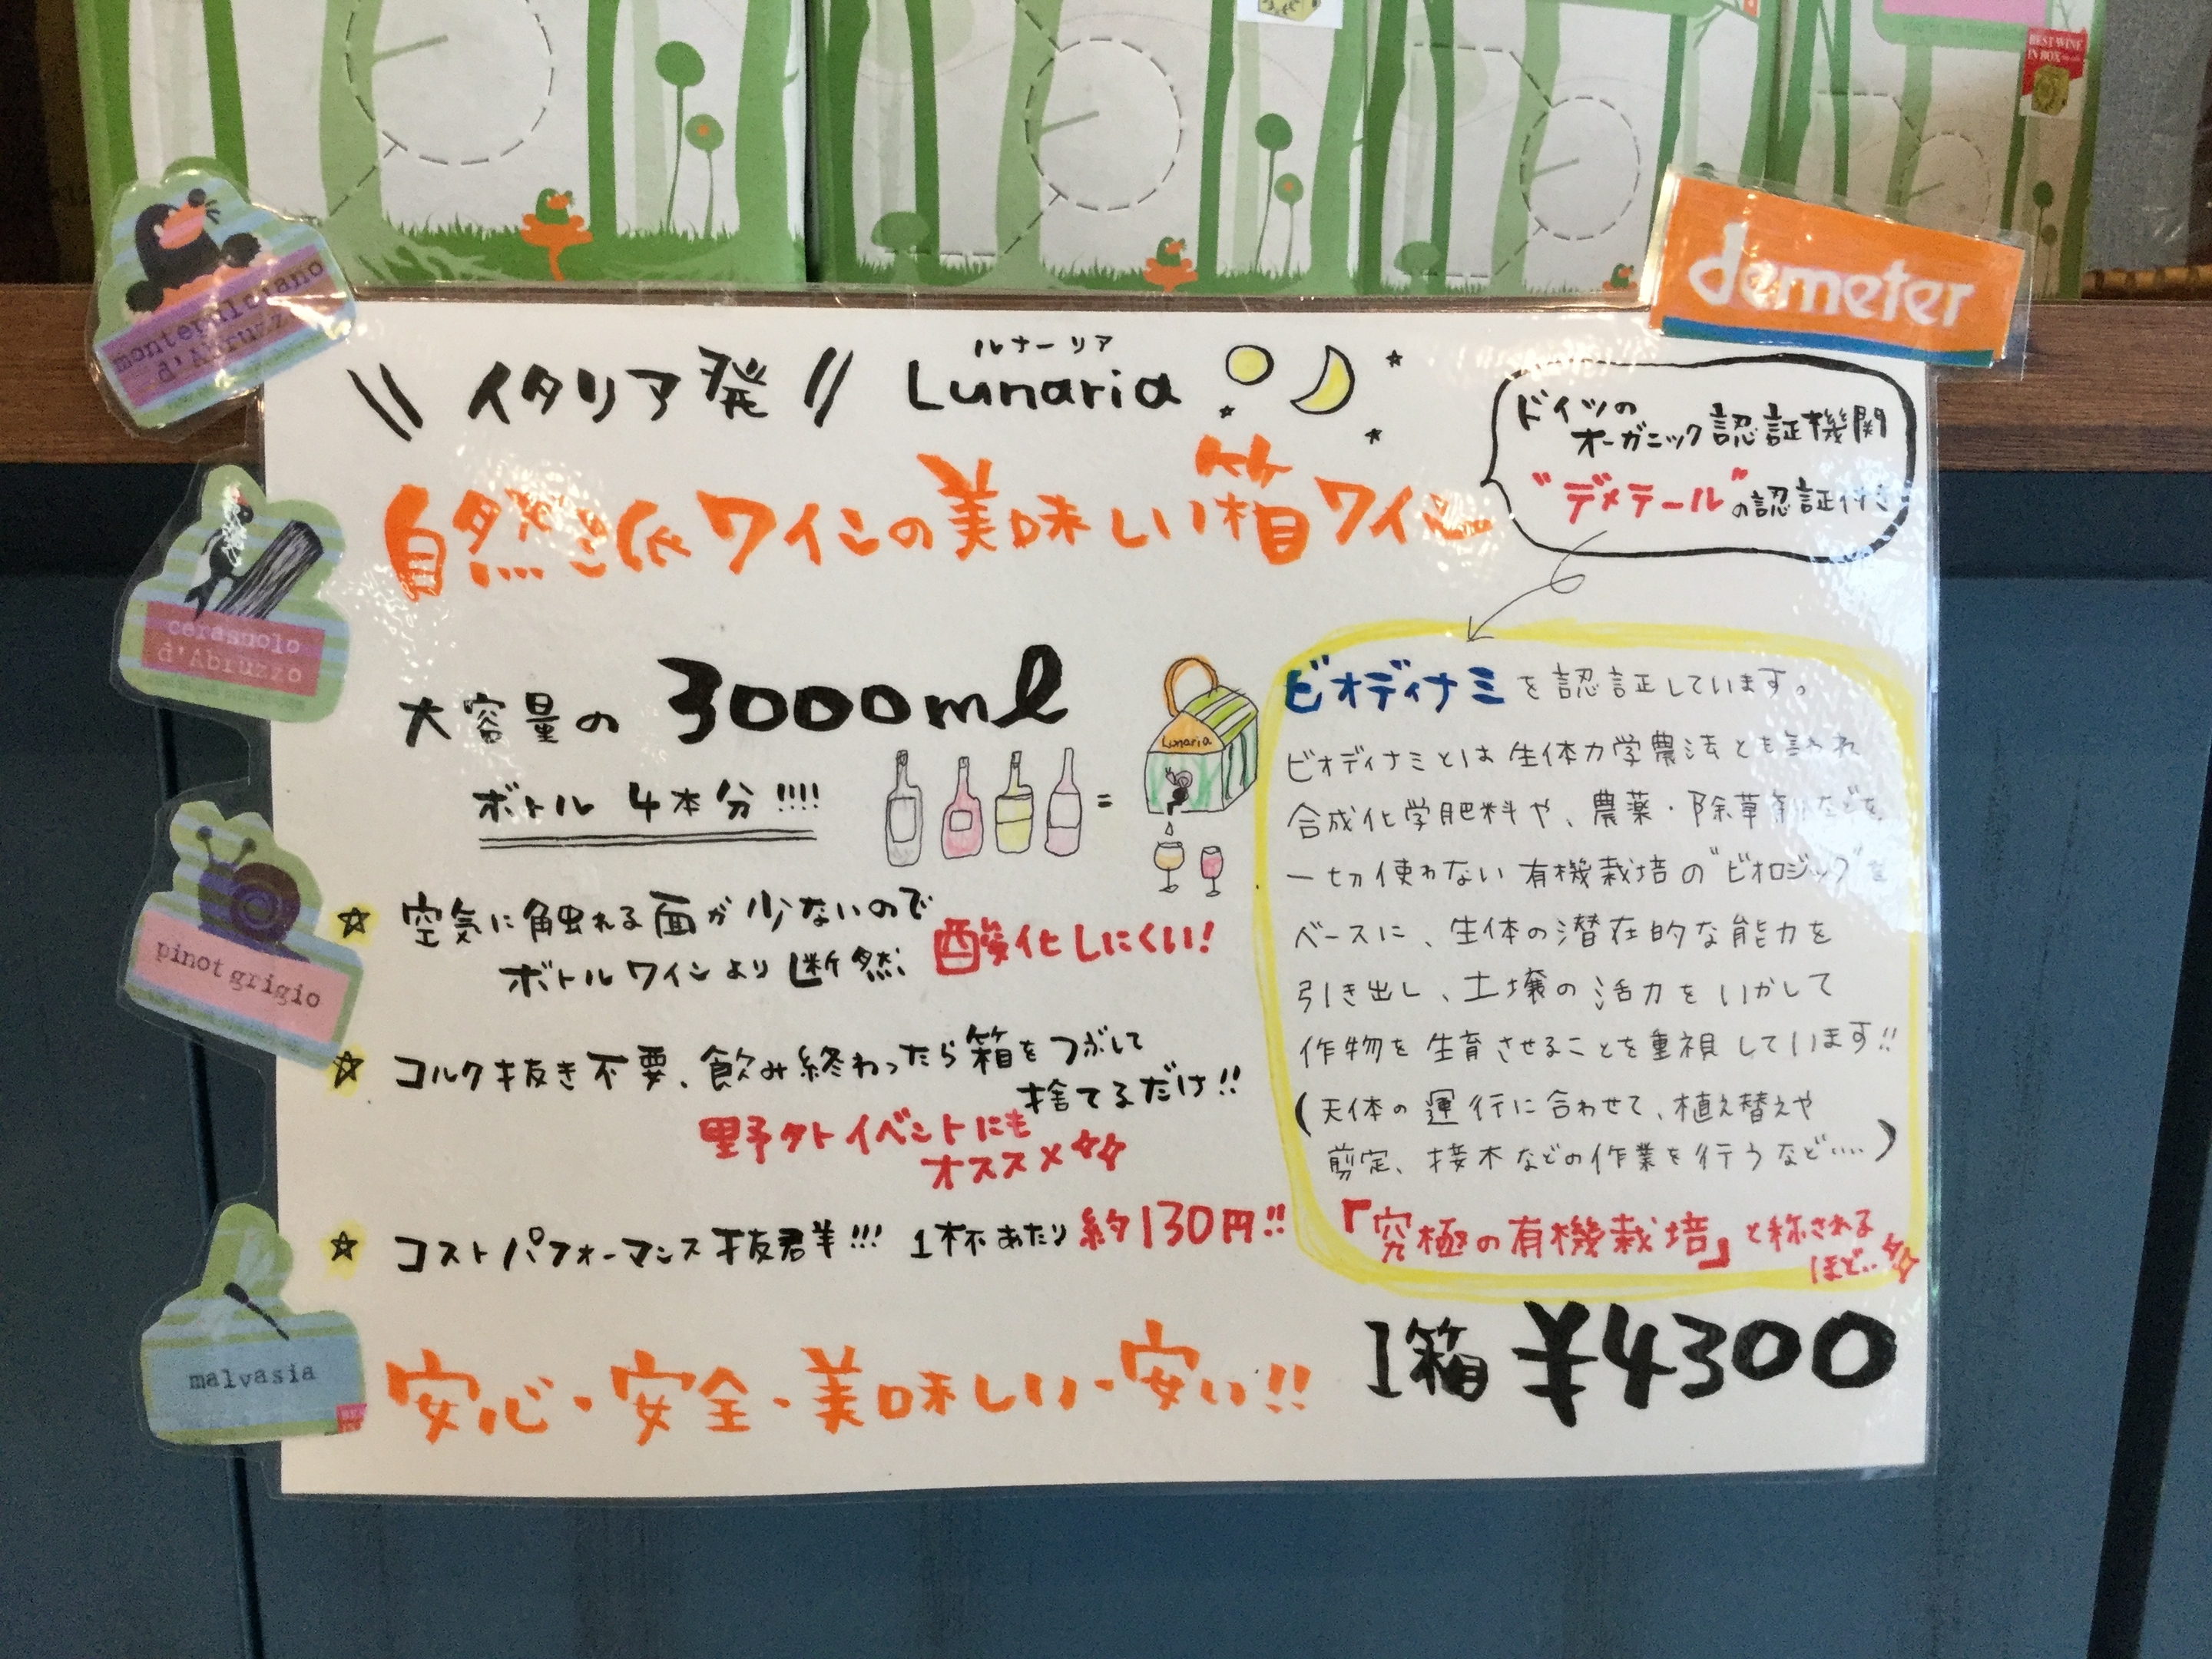 BEST WINE
IN BOX
demeter
montepulciano
d'Abruzzo
cerasuolo
d'Abruzzo
pinot grigio
malvasia
\\ イタリア発 // Lunaria
ルナーリア
自然派ワインの美味しい箱ワイン
ドイツの
オーガニック認証機関
"デメテール"の認証付き
大容量の 3000ml
ボトル 4本分!!!!
=
Lunaria
☆ 空気に触れる面が少ないので
ボトルワインより断然、酸化しにくい!
☆ コルク抜き不要、飲み終わったら箱をつぶして
捨てるだけ!!
野外イベントにも
オススメ
☆ コストパフォーマンス抜群!!! 1杯あたり 約130円!!
ビオディナミを認証しています。
ビオディナミとは生体力学農法とも言われ
合成化学肥料や、農薬・除草剤などを
一切使わない有機栽培の"ビオロジック"を
ベースに、生体の潜在的な能力を
引き出し、土壌の活力をいかして
作物を生育させることを重視しています!!
(天体の運行に合わせて、植え替えや
剪定、接木などの作業を行うなど……)
『究極の有機栽培』と称される
ほど…
安心・安全・美味しい・安い!!
1箱 ¥4300